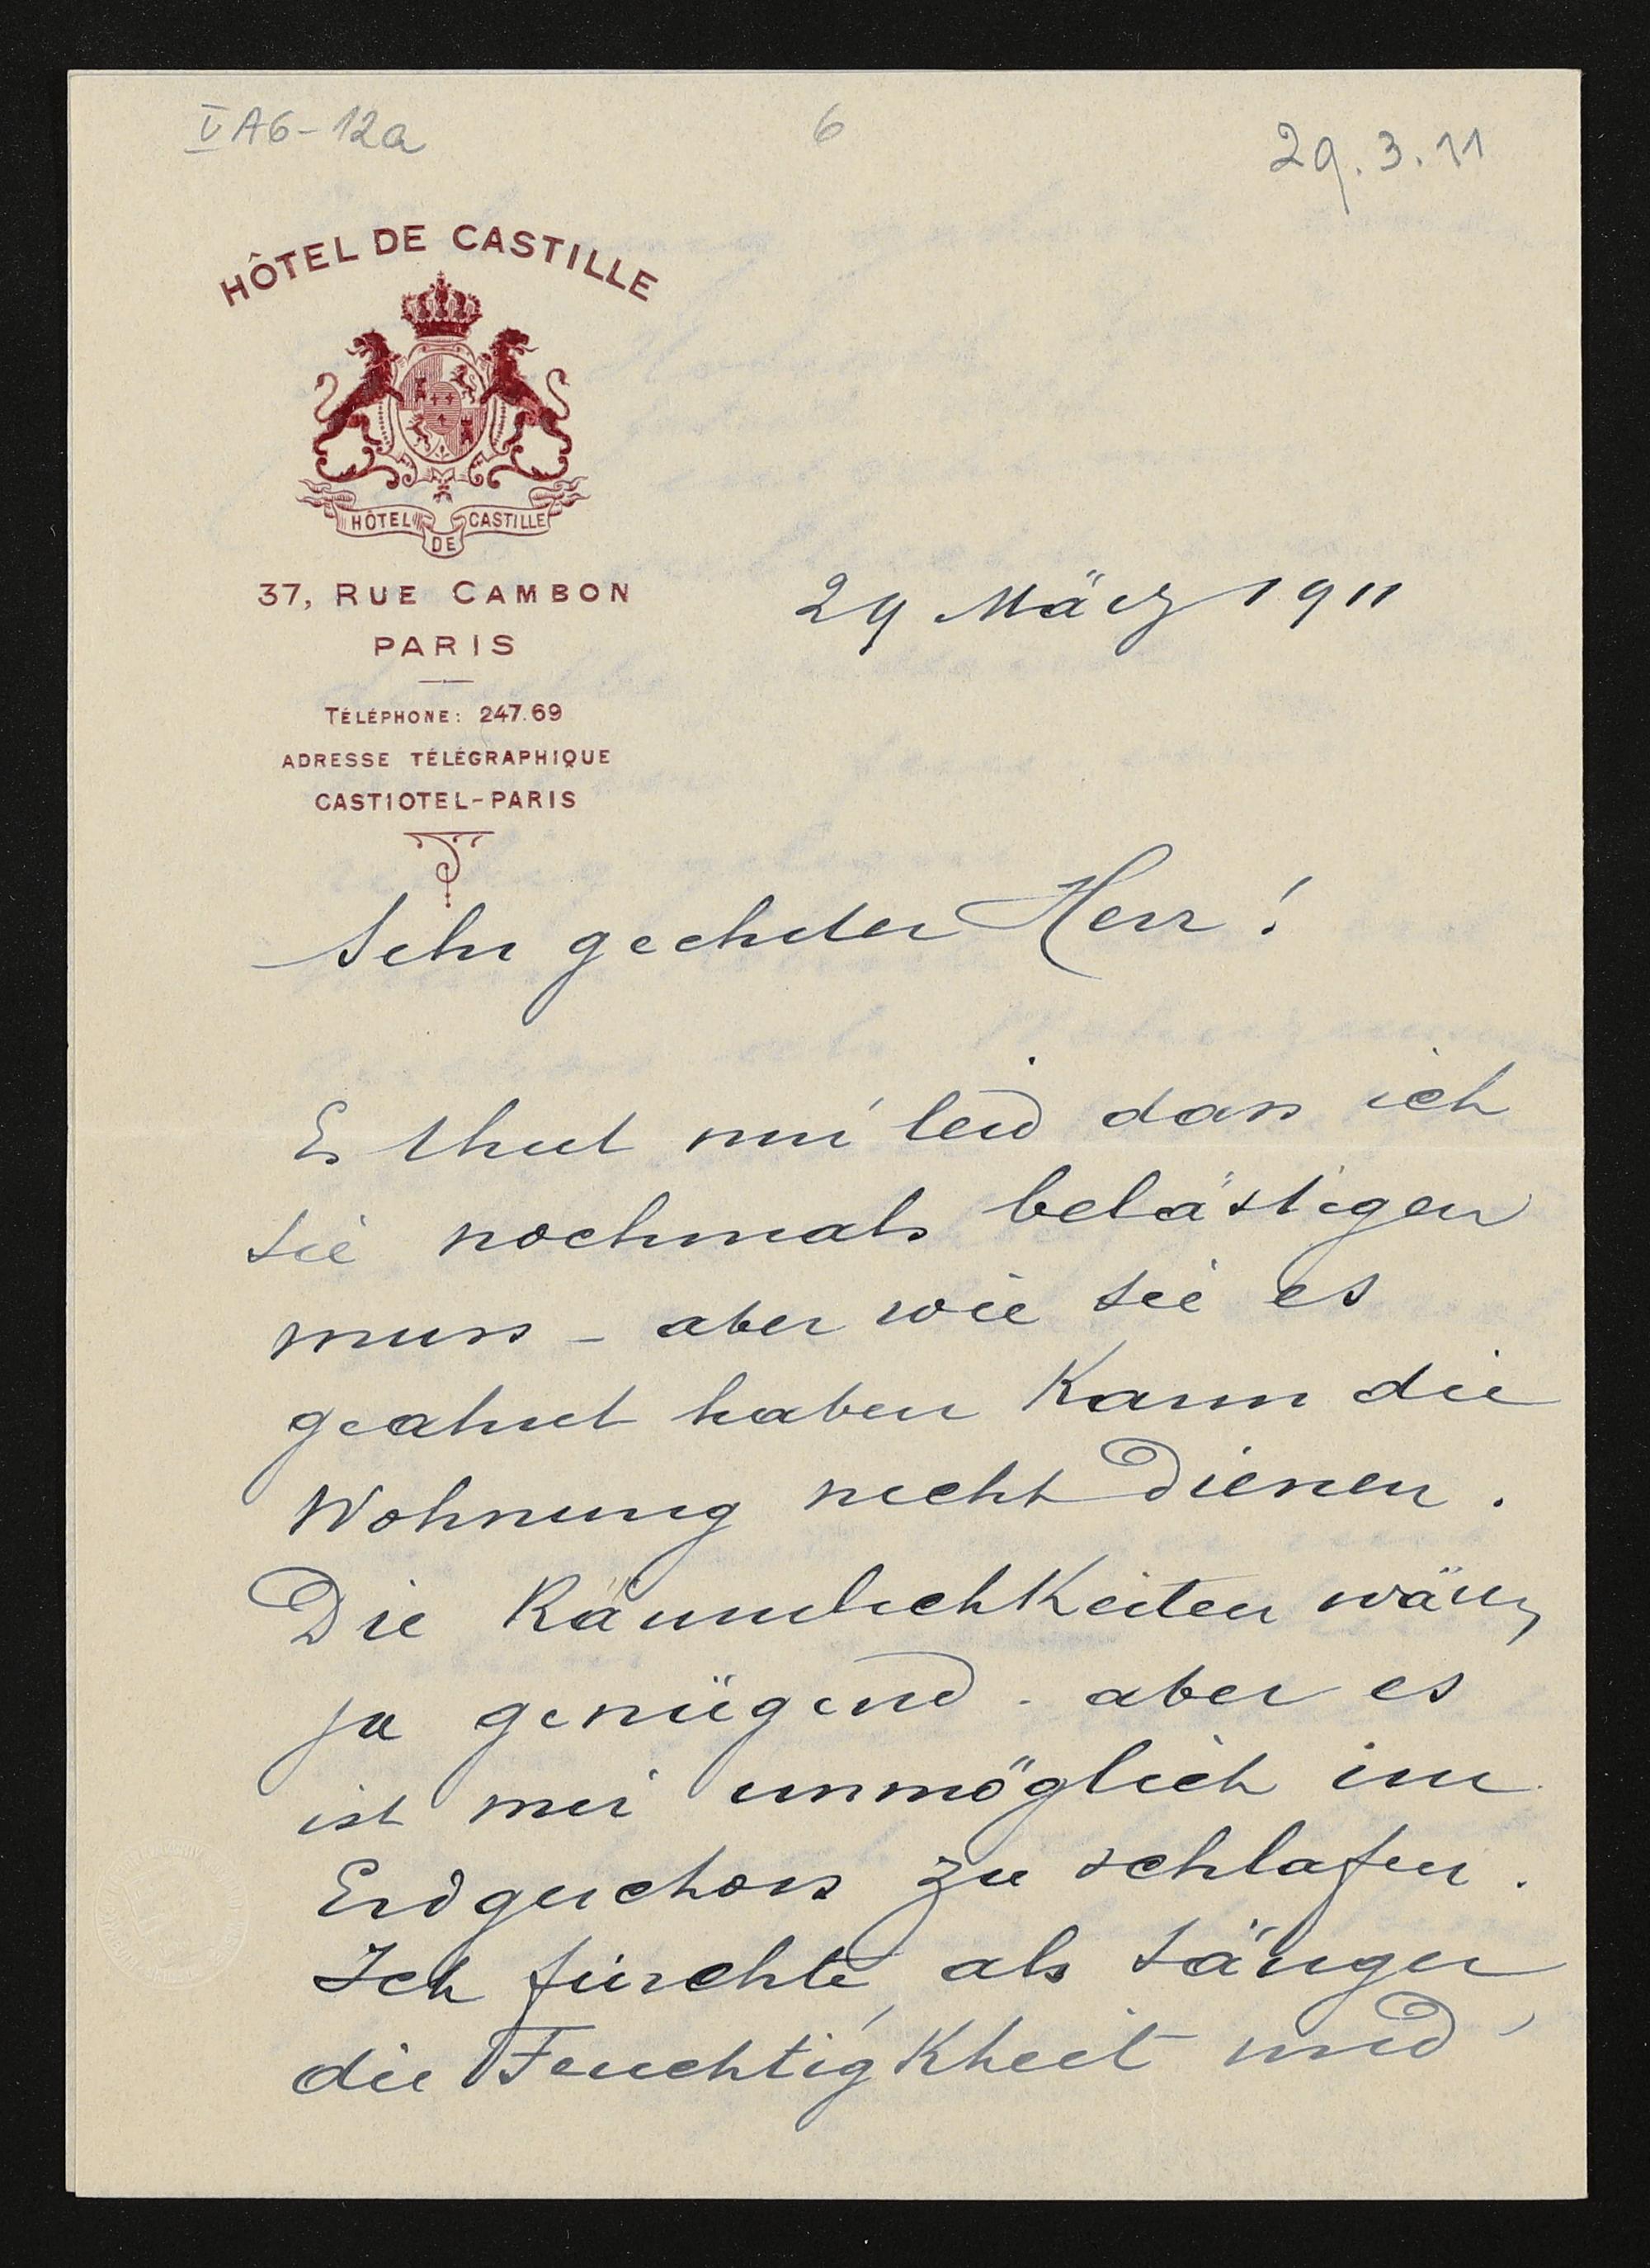 V A6-12a
6
29.3.11
HÔTEL DE CASTILLE
HÔTEL DE CASTILLE
37, RUE CAMBON
PARIS
TÉLÉPHONE: 247.69
ADRESSE TÉLÉGRAPHIQUE
CASTIOTEL-PARIS
29 März 1911
Sehr geehrter Herr!
Es thut mir leid dass ich
Sie nochmals belästigen
muss - aber wie Sie es
geahnt haben kann die
Wohnung nicht dienen.
Die Räumlichkeiten wären
ja genügend - aber es
ist mir unmöglich im
Erdgeschoss zu schlafen.
Ich fürchte, als Sänger
die Feuchtigkheit und